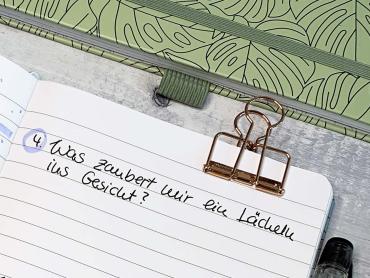 4. Was zaubert mir ein Lächeln
ins Gesicht?